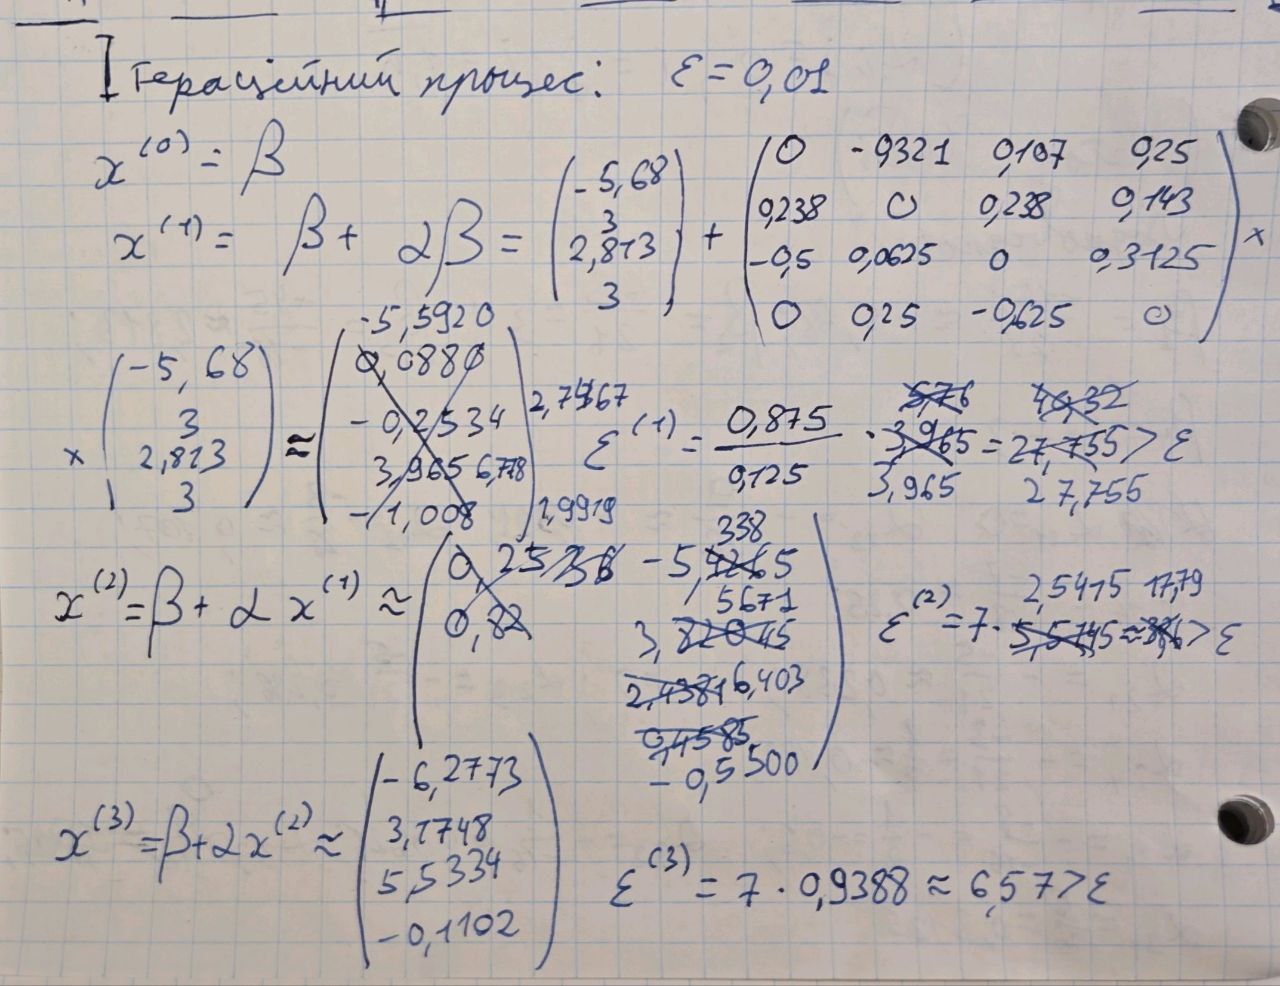 Ітераційний процес: ε = 0,01
x⁽⁰⁾ = β
x⁽¹⁾ = β + αβ = (-5,68; 3; 2,813; 3) +
0 -0,321 0,107 0,25
0,238 0 0,238 0,143
-0,5 0,0625 0 0,3125
0 0,25 -0,625 0
×
× (-5,68; 3; 2,813; 3) ≈
-5,5920
0,0880
-0,2534
3,965 6,778
-1,008 1,9919
ε⁽¹⁾ = 0,875 / 0,125 · 3,965 = 27,755 > ε
3,965 27,755
x⁽²⁾ = β + α x⁽¹⁾ ≈
0,82
-5,338
3,5671
6,403
-0,5500
ε⁽²⁾ = 7 · 2,5415 17,79 > ε
x⁽³⁾ = β + αx⁽²⁾ ≈
-6,2773
3,1748
5,5334
-0,1102
ε⁽³⁾ = 7 · 0,9388 ≈ 6,57 > ε